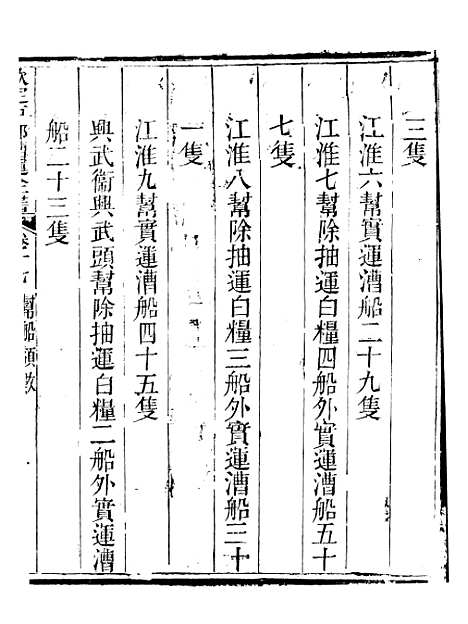 三隻
江淮六幫實運漕船二十九隻
江淮七幫除抽運白糧四船外實運漕船五十
七隻
江淮八幫除抽運白糧三船外實運漕船三十
一隻
江淮九幫實運漕船四十五隻
興武衞興武頭幫除抽運白糧二船外實運漕
船二十三隻
幫船額數